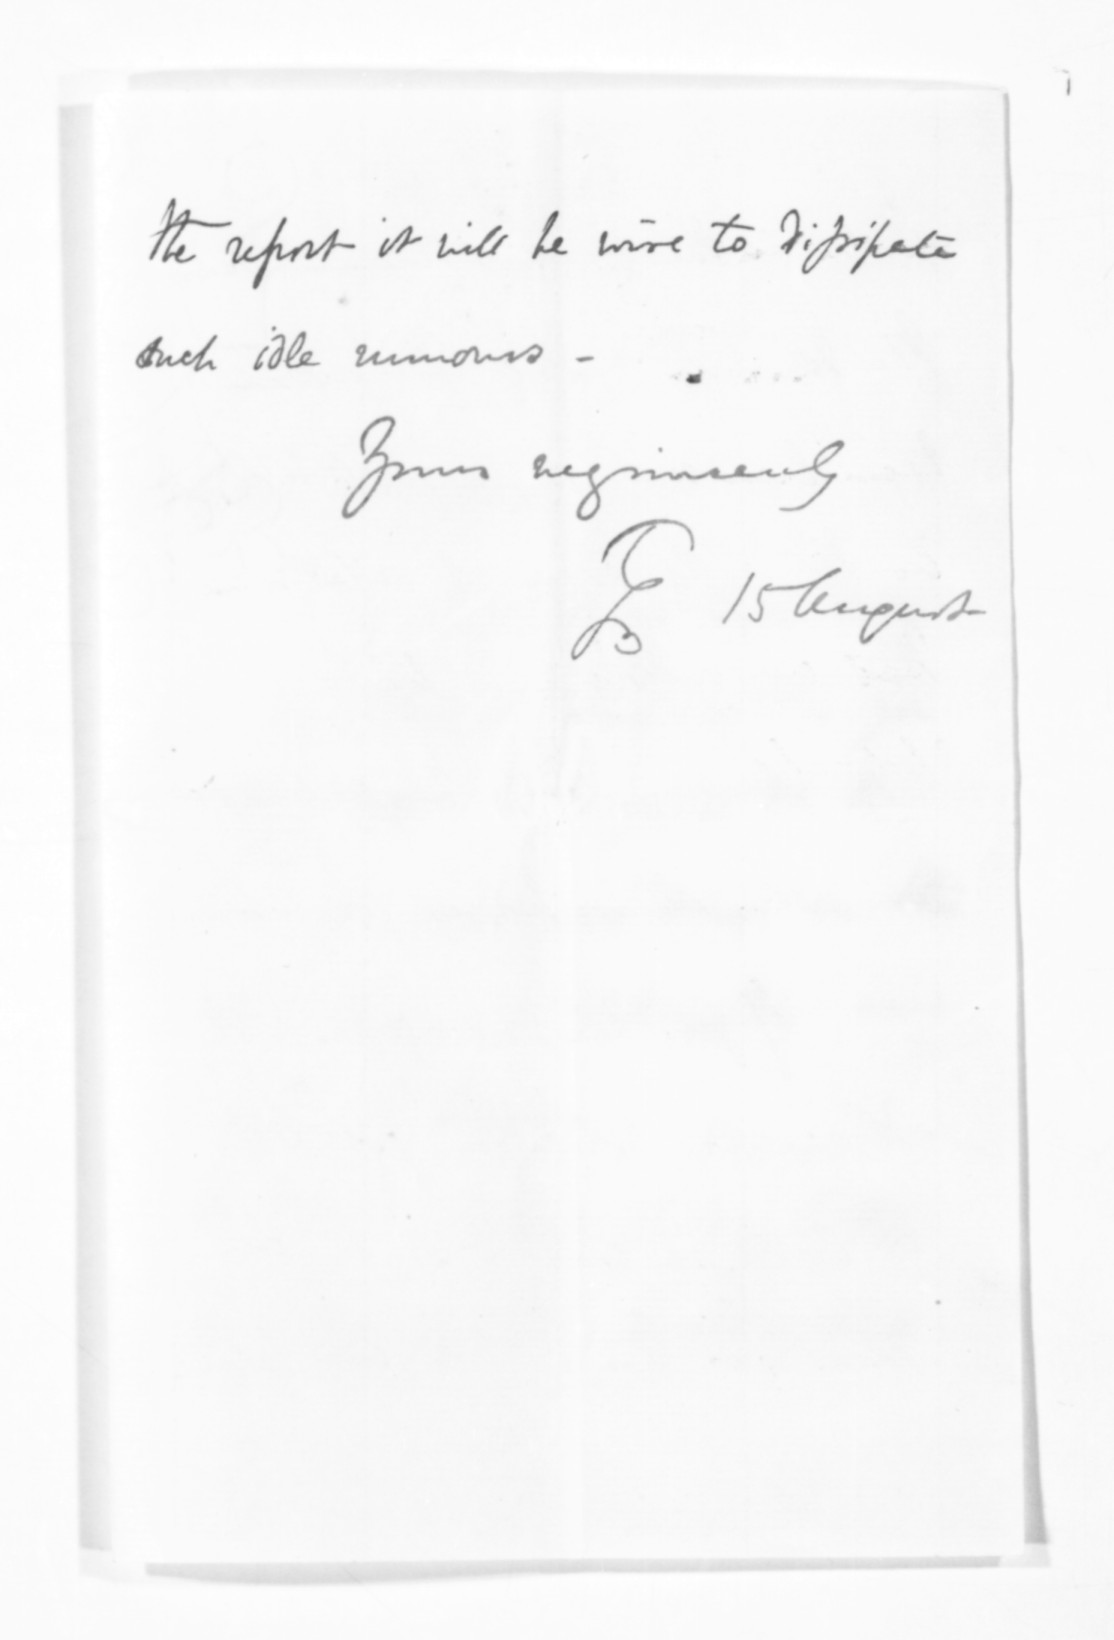 the report it will be wise to dissipate
such idle rumours -
Yours very sincerely
15 August